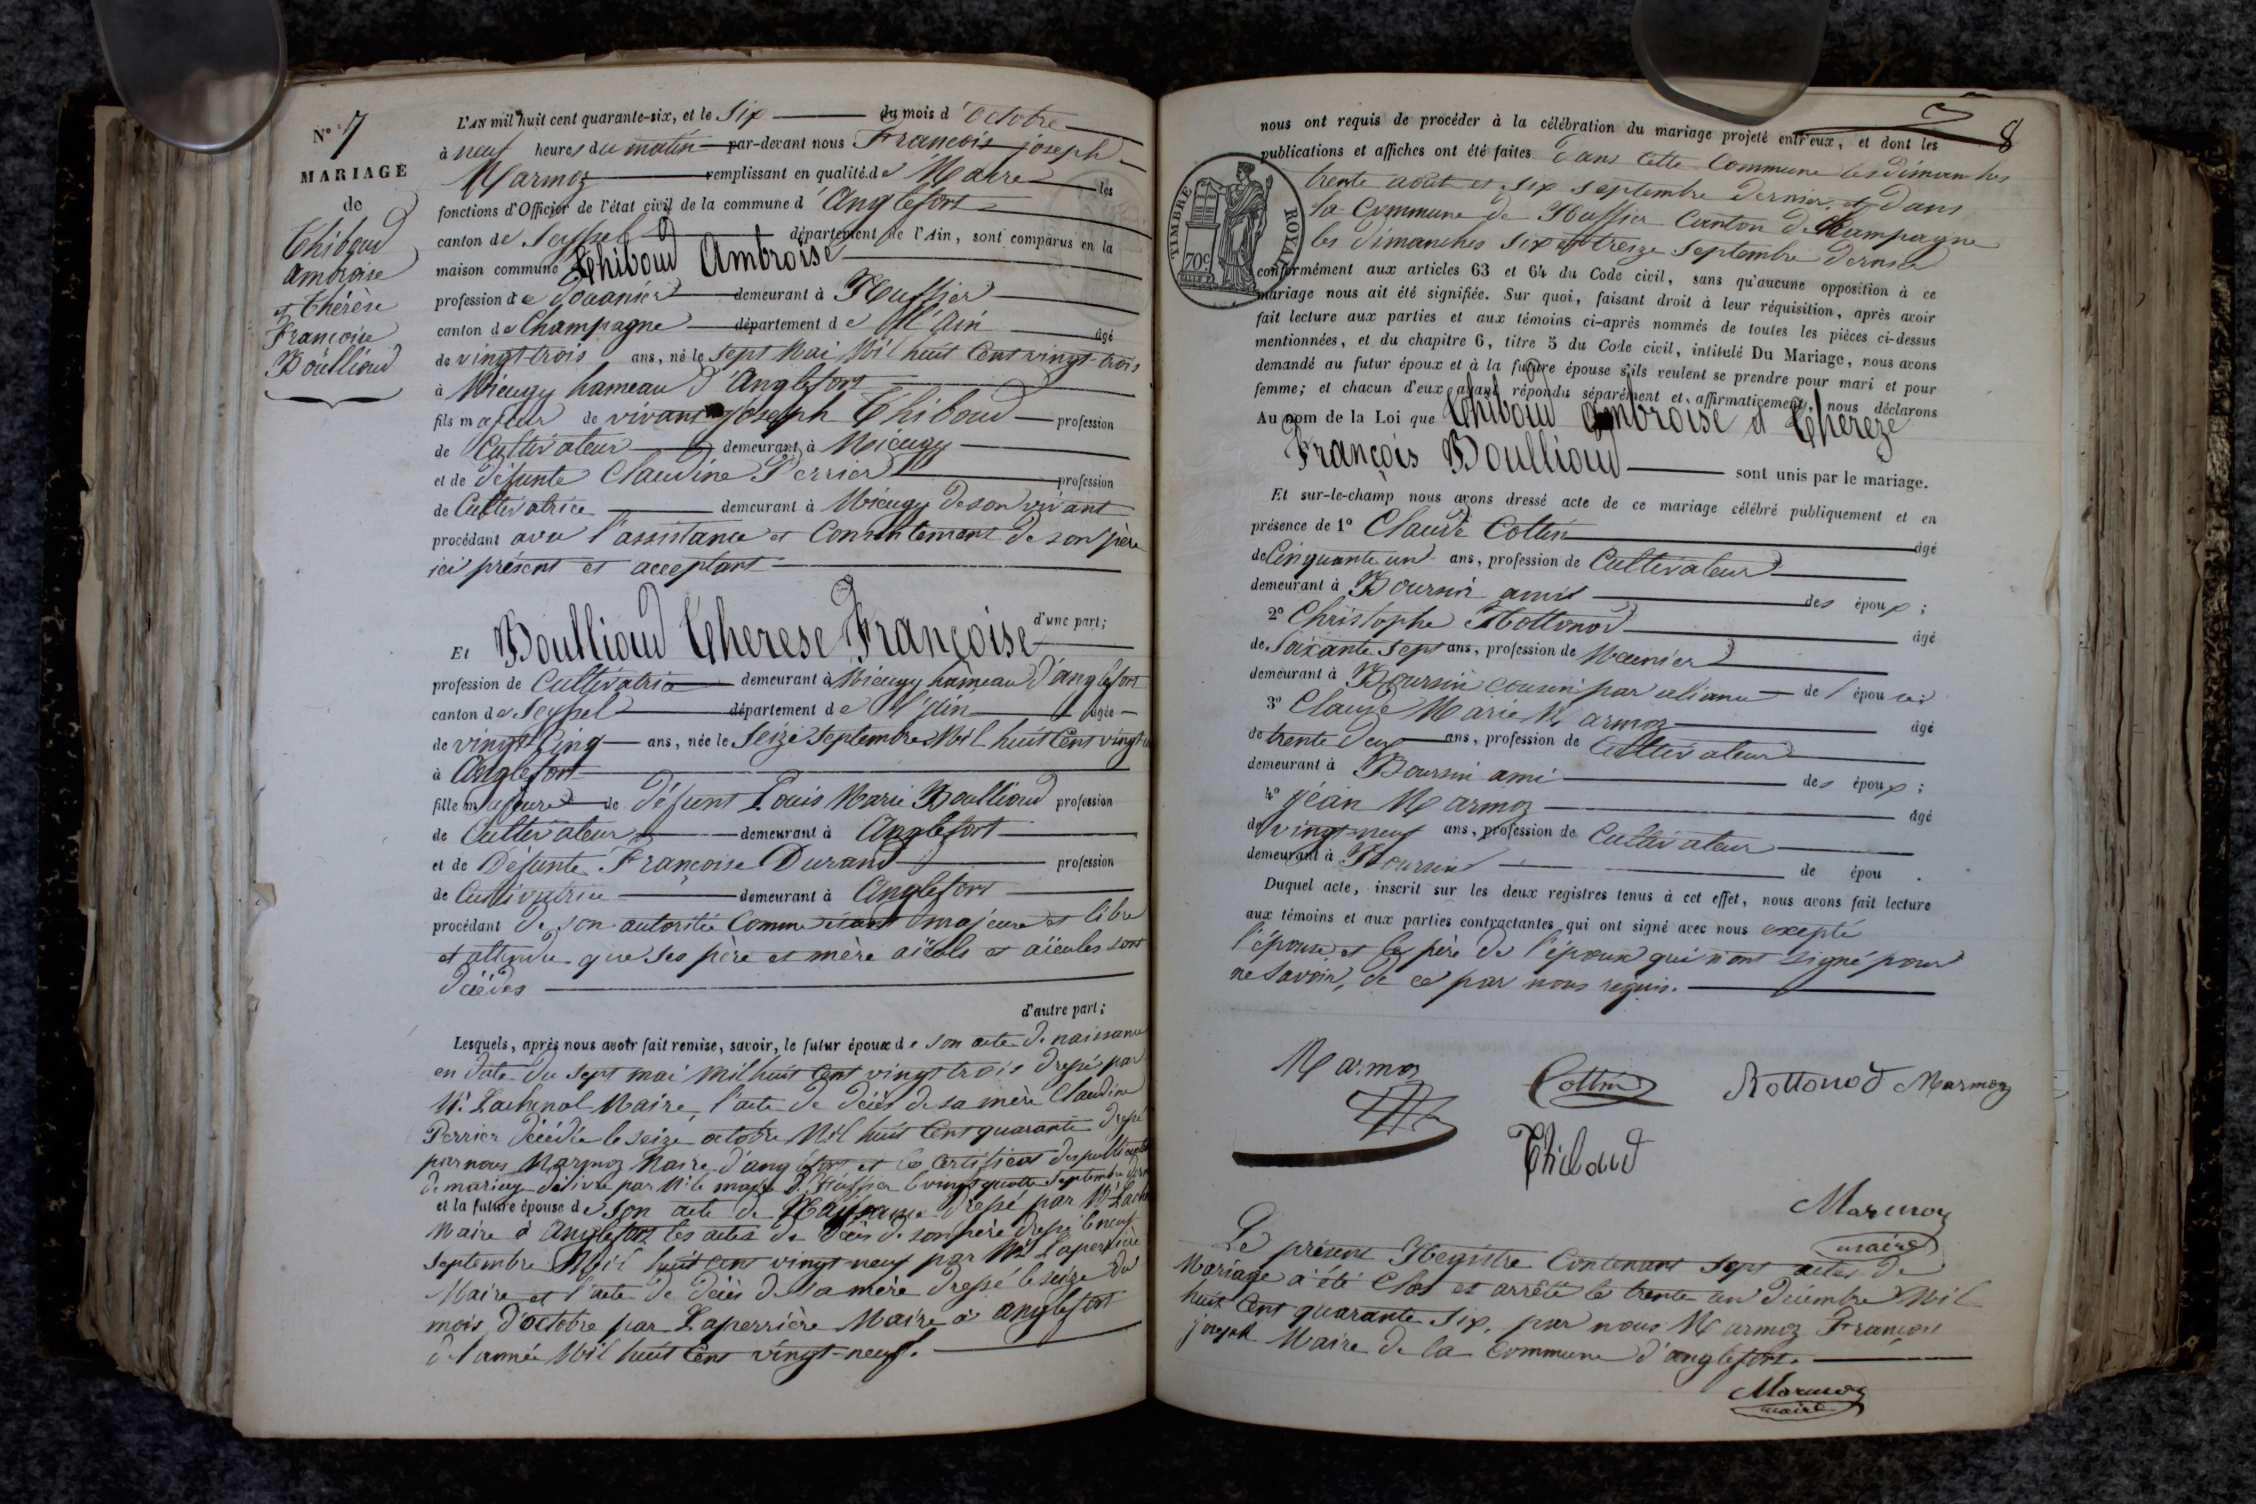 N° 7
MARIAGE
de
Thiboud
Ambroise
et Thérèse
Françoise
Boullioud
L'AN mil huit cent quarante-six, et le Six du mois d'Octobre
à neuf heures du matin par-devant nous François joseph
Marmoz remplissant en qualité de Maire les
fonctions d'Officier de l'état civil de la commune d'Anglefort
canton de Seyssel département de l'Ain, sont comparus en la
maison commune Thiboud Ambroise
profession de douanier demeurant à
canton de Champagne département de l'Ain âgé
de vingt trois ans, né le sept Mai Mil huit Cent vingt-trois
à Mieugy hameau d'Anglefort
fils majeur de vivant joseph Thiboud profession
de Cultivateur demeurant à Mieugy
et de défunte Claudine Perrier profession
de Cultivatrice demeurant à Mieugy de son vivant
procédant avec l'assistance et Consentement de son père
ici présent et acceptant
d'une part;
Et Boullioud Therese Françoise
profession de Cultivatrice demeurant à Mieugy hameau d'anglefort
canton de Seyssel département de l'Ain âgée
de vingt Cinq ans, née le Seize Septembre Mil huit Cent vingt
à Anglefort
fille majeure de défunt Louis Marie Boullioud profession
de Cultivateur demeurant à Anglefort
et de Défunte Françoise Durand profession
de Cultivatrice demeurant à Anglefort
procédant de son autorité Comme étant majeure et libre
et attendu que ses père et mère aïeuls et aïeules sont
décédés
d'autre part;
Lesquels, après nous avoir fait remise, savoir, le futur époux de son acte de naissance
en date du sept mai mil huit Cent vingt trois dressé par
Mr Lachenal Maire, l'acte de décès de sa mère Claudine
Perrier décédée le seize octobre Mil huit Cent quarante dressé
par nous Marmoz Maire d'anglefort et le Certificat des publications
de mariage délivré par Mr le maire d' le vingt quatre septembre
et la future épouse de son acte de Naissance dressé par Mr
Maire d'Anglefort les actes de décès de son père dressé le neuf
septembre Mil huit cent vingt-neuf par Mr Laperrière
Maire et l'acte de décès de sa mère dressé le seize du
mois d'octobre par Laperrière Maire à anglefort
de l'année Mil huit Cent vingt-neuf.
8
nous ont requis de procéder à la célébration du mariage projeté entr'eux, et dont les
publications et affiches ont été faites dans cette Commune les dimanches
trente août et six septembre dernier, et dans
la Commune de Canton de Champagne
les dimanches six et treize Septembre dernier
TIMBRE ROYAL
70c
conformément aux articles 63 et 64 du Code civil, sans qu'aucune opposition à ce
mariage nous ait été signifiée. Sur quoi, faisant droit à leur réquisition, après avoir
fait lecture aux parties et aux témoins ci-après nommés de toutes les pièces ci-dessus
mentionnées, et du chapitre 6, titre 5 du Code civil, intitulé Du Mariage, nous avons
demandé au futur époux et à la future épouse s'ils veulent se prendre pour mari et pour
femme; et chacun d'eux ayant répondu séparément et affirmativement, nous déclarons
Au nom de la Loi que Thiboud Ambroise et Thereze
François Boullioud sont unis par le mariage.
Et sur-le-champ nous avons dressé acte de ce mariage célébré publiquement et en
présence de 1° Claude Cottin âgé
de Cinquante un ans, profession de Cultivateur
demeurant à Boursin amis des époux;
2° Christophe Rottonod âgé
de Soixante Sept ans, profession de Meunier
demeurant à Boursin cousin par aliance de l'épou
3° Claude Marie Marmoz âgé
de trente deux ans, profession de Cultivateur
demeurant à Boursin ami des époux;
4° jean Marmoz âgé
de vingt-neuf ans, profession de Cultivateur
demeurant à Boursin de épou .
Duquel acte, inscrit sur les deux registres tenus à cet effet, nous avons fait lecture
aux témoins et aux parties contractantes qui ont signé avec nous excepté
l'épouse et le père de l'époux qui n'ont signé pour
ne savoir, de ce par nous requis.
Marmoz
Cottin
Rottonod
Marmoz
Thiboud
Marmoz
maire
Le présent Registre Contenant sept actes de
Mariage a été Clos et arrêté le trente un décembre Mil
huit Cent quarante Six, par nous Marmoz François
joseph Maire de la Commune d'anglefort.
Marmoz
maire